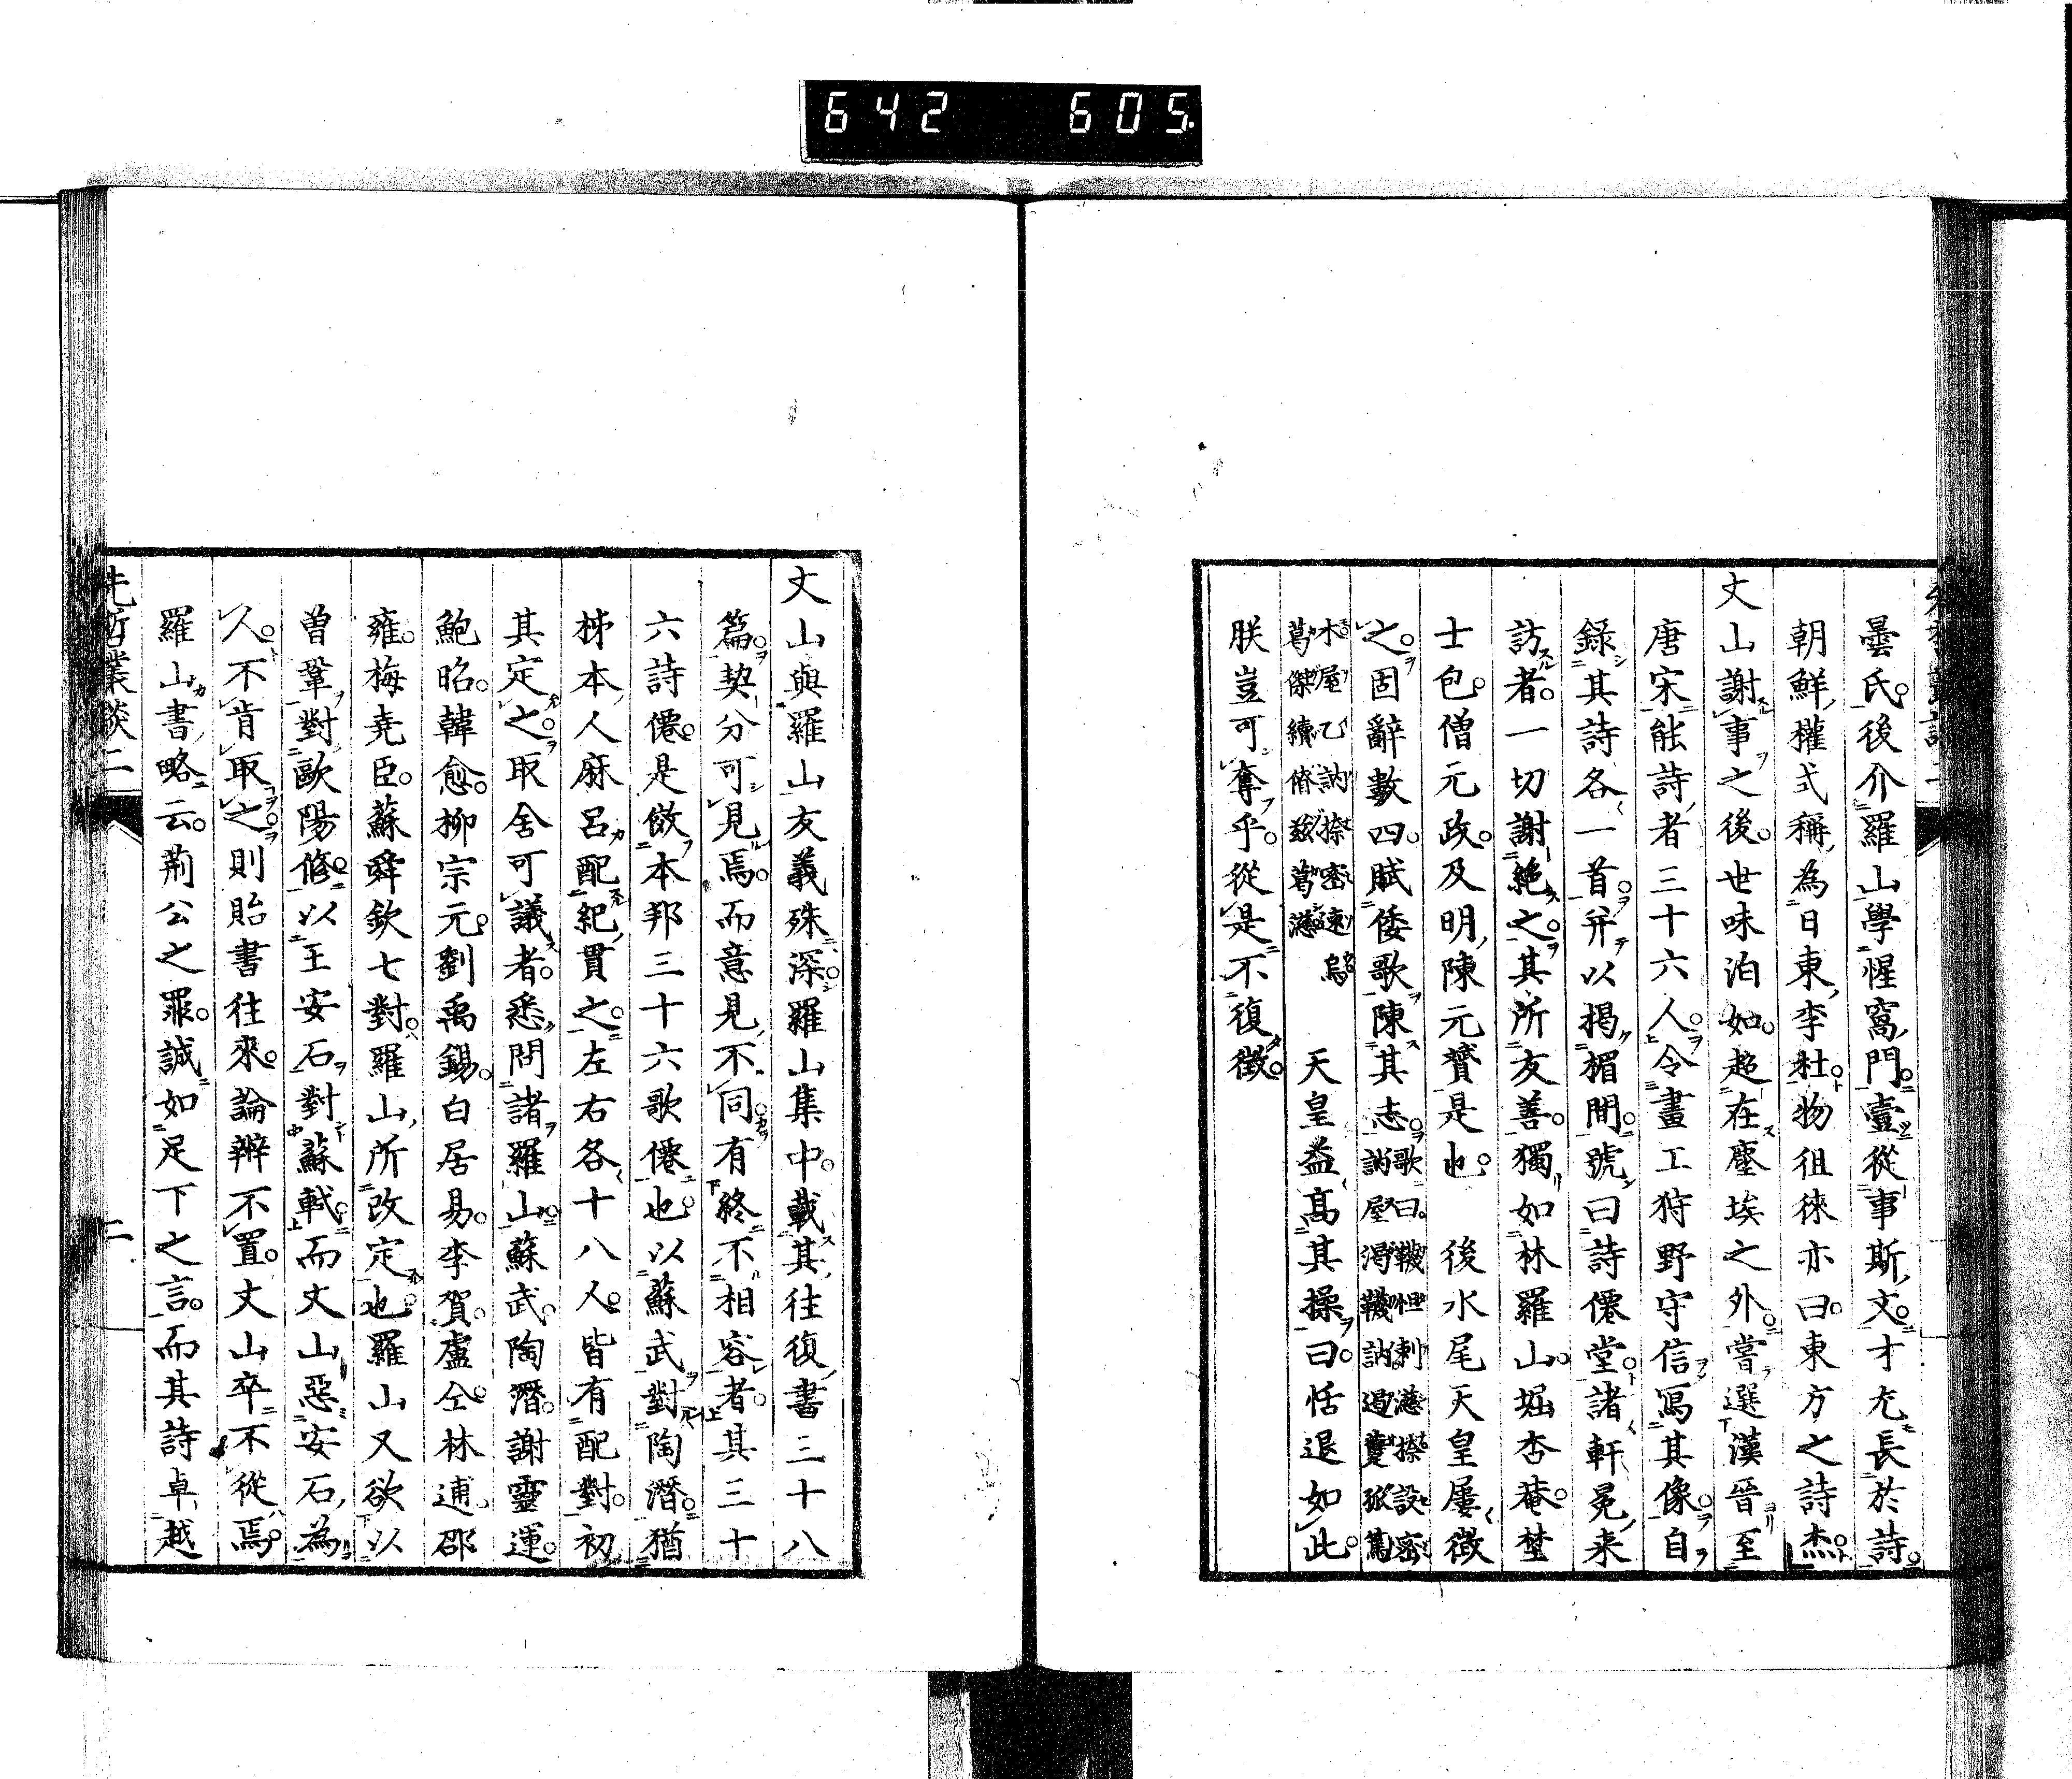 642 605.
曇氏。後介羅山學惺窩門。壹從事斯文。才尤長於詩。
朝鮮權式稱為日東李杜。物徂徠亦曰。東方之詩杰。
丈山謝事之後。世味泊如。超在塵埃之外。嘗選漢晉至
唐宋能詩者三十六人。令畫工狩野守信寫其像。自
錄其詩各一首。并以揭楣間。號曰詩僊堂。諸軒冕来
訪者。一切謝絕之。其所友善。獨如林羅山。堀杏菴。埜
士包。僧元政。及明陳元贇是也。 後水尾天皇屢徴
之。固辭數四。賦倭歌陳其志。歌曰。
木屋乙訥捺密速烏
葛傑續
天皇益高其操曰。恬退如此。
朕豈可奪乎。從是不復徵。
丈山與羅山友義殊深。羅山集中。載其往復書三十八
篇。契分可見焉。而意見不同。有終不相容者。其三十
六詩僊。是倣本邦三十六歌僊也。以蘇武對陶潛。猶
柹本人麻呂配紀貫之。左右各十八人。皆有配對。初
其定之。取舍可議者。悉問諸羅山。蘇武。陶潛。謝靈運。
鮑昭。韓愈。柳宗元。劉禹錫。白居易。李賀。盧仝。林逋。邵
雍。梅堯臣。蘇舜欽七對。羅山所改定也。羅山又欲以
曾鞏對歐陽修。以王安石對蘇軾。而丈山惡安石為
人。不肯取之。則貽書往來。論辨不置。丈山卒不從焉。
羅山書略云。荊公之罪。誠如足下之言。而其詩卓越
先哲叢談二
二